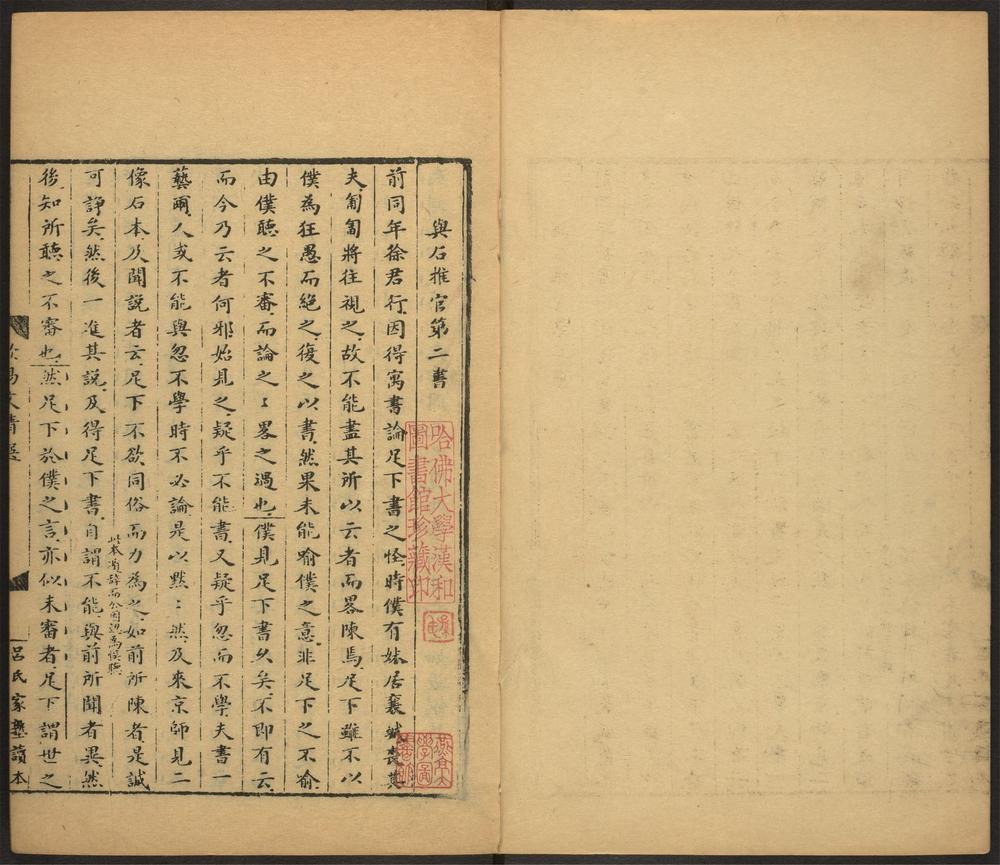 與石推官第二書
前同年徐君行因得寓書論足下書之怪時僕有妹居襄城喪其
夫匍匐將往視之故不能盡其所以云者而畧陳焉足下雖不以
僕為狂愚而絕之復之以書然果未能喻僕之意非足下之不喻
由僕聽之不審而論之〻畧之過也僕見足下書久矣不即有云
而今乃云者何邪始見之疑乎不能書又疑乎忽而不學夫書一
藝爾人或不能與忽不學時不必論是以默〻然及來京師見二
像石本及聞說者云足下不欲同俗而力為之如前所陳者是誠
可諍矣然後一准其說及得足下書自謂不能與前所聞者異然
後知所聽之不審也然足下於僕之言亦似未審者足下謂世之
呂氏家塾讀本
哈佛大學漢和
圖書館珍藏印